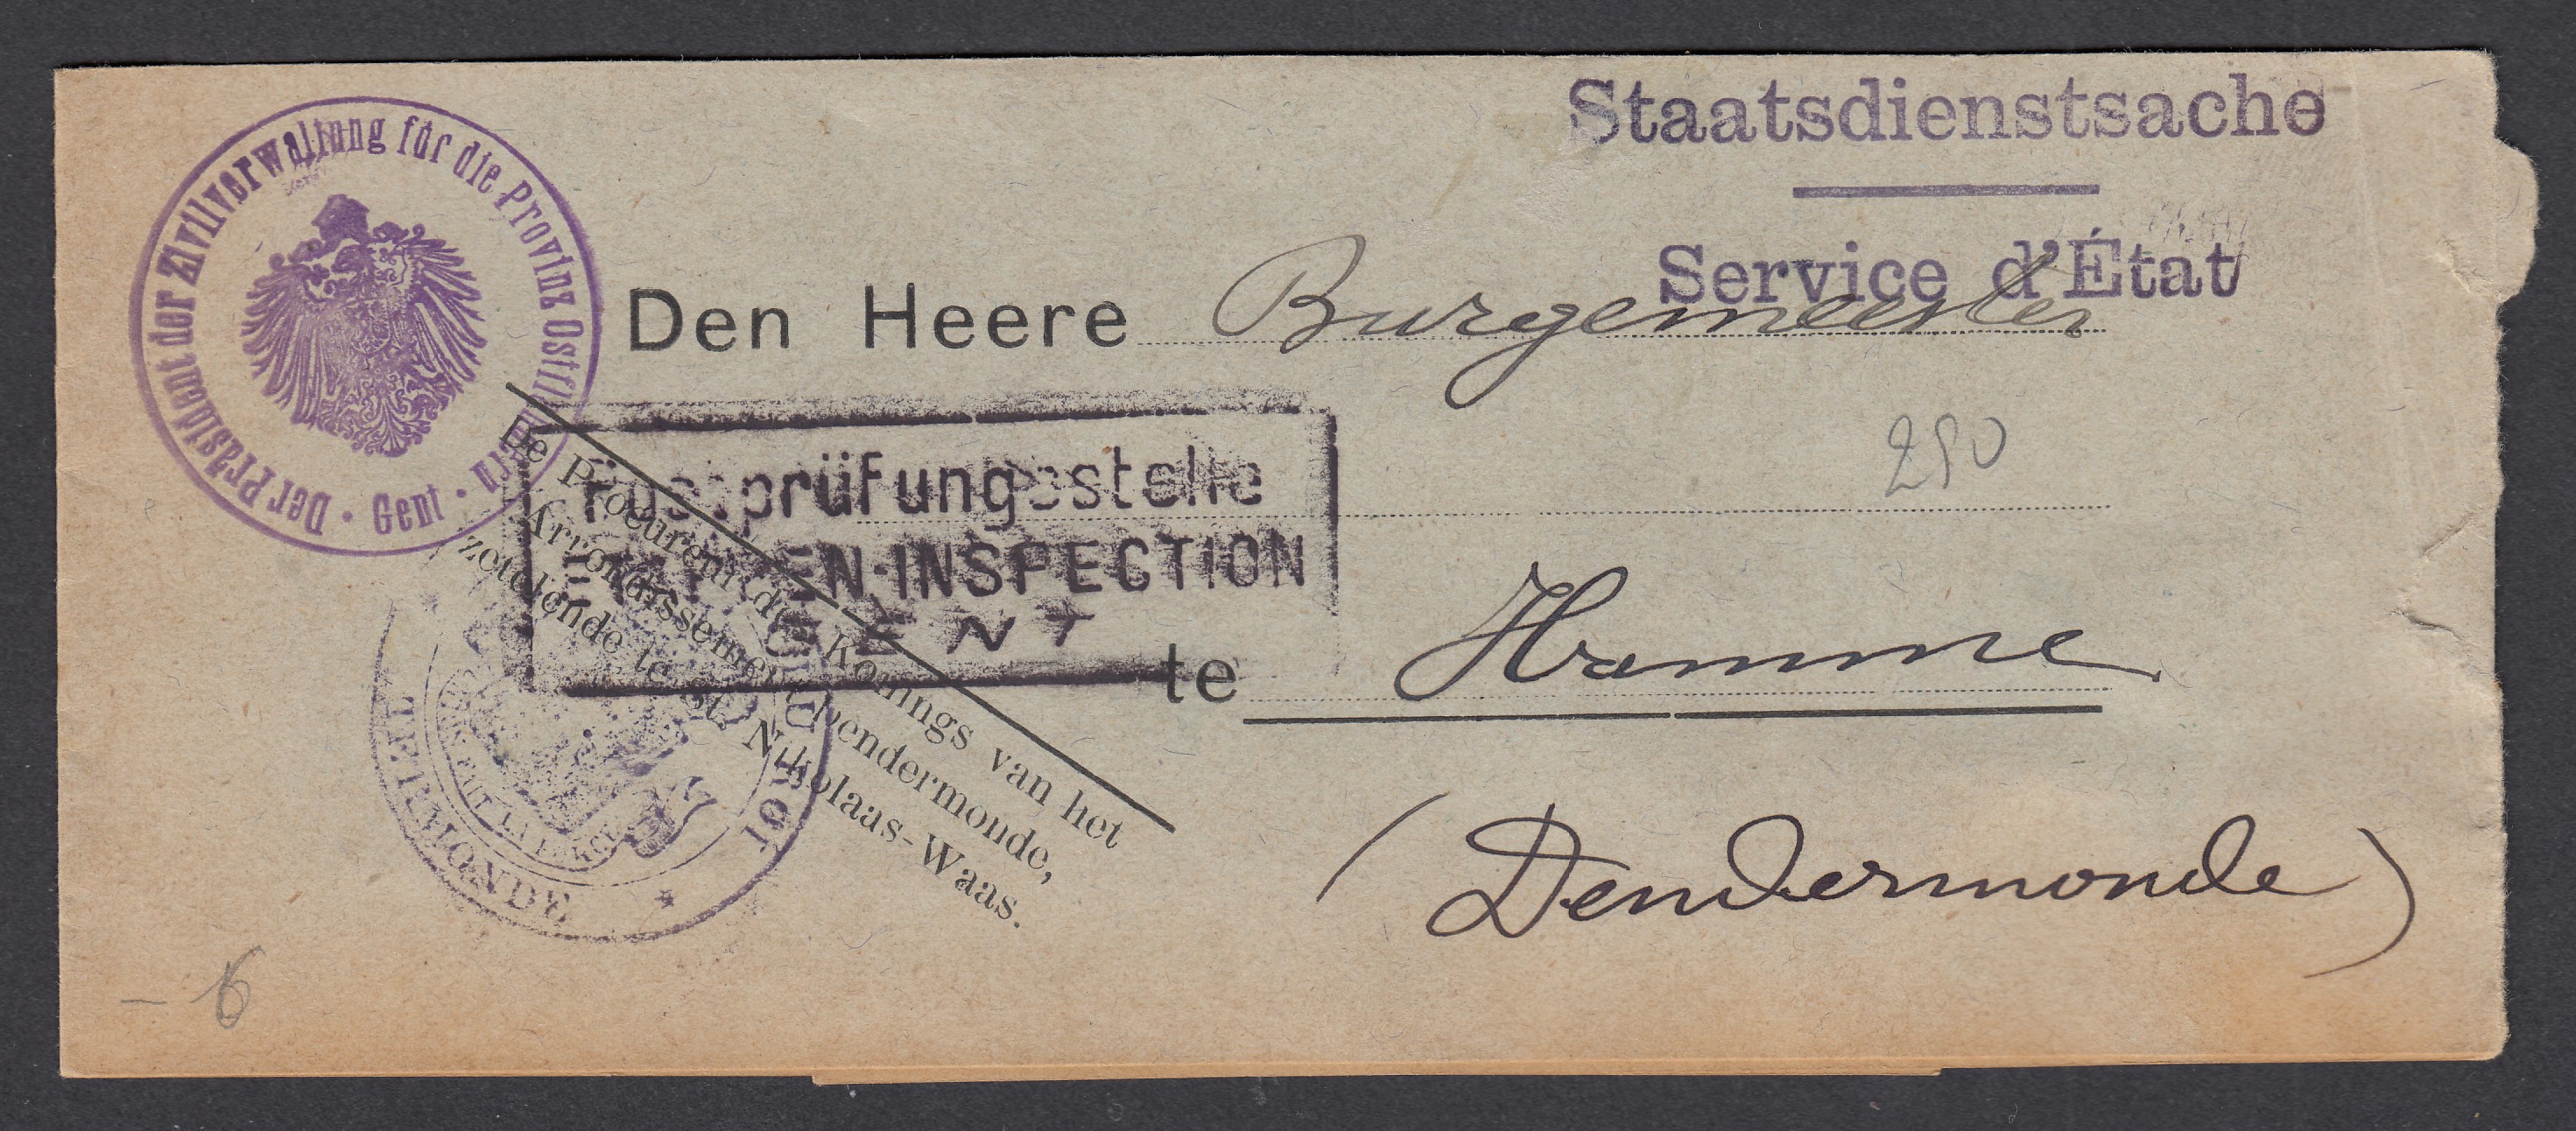 Staatsdienstsache
Service d'État
Der Präsident der Zivilverwaltung für die Provinz Ostflandern · Gent ·
Den Heere Burgemeester
290
Postprüfungsstelle
ETAPPEN-INSPECTION
GENT
De Procureur des Konings van het
Arrondissement Dendermonde,
zetelende te St. Nikolaas-Waas.
te Hamme
(Dendermonde)
TERMONDE
- 6